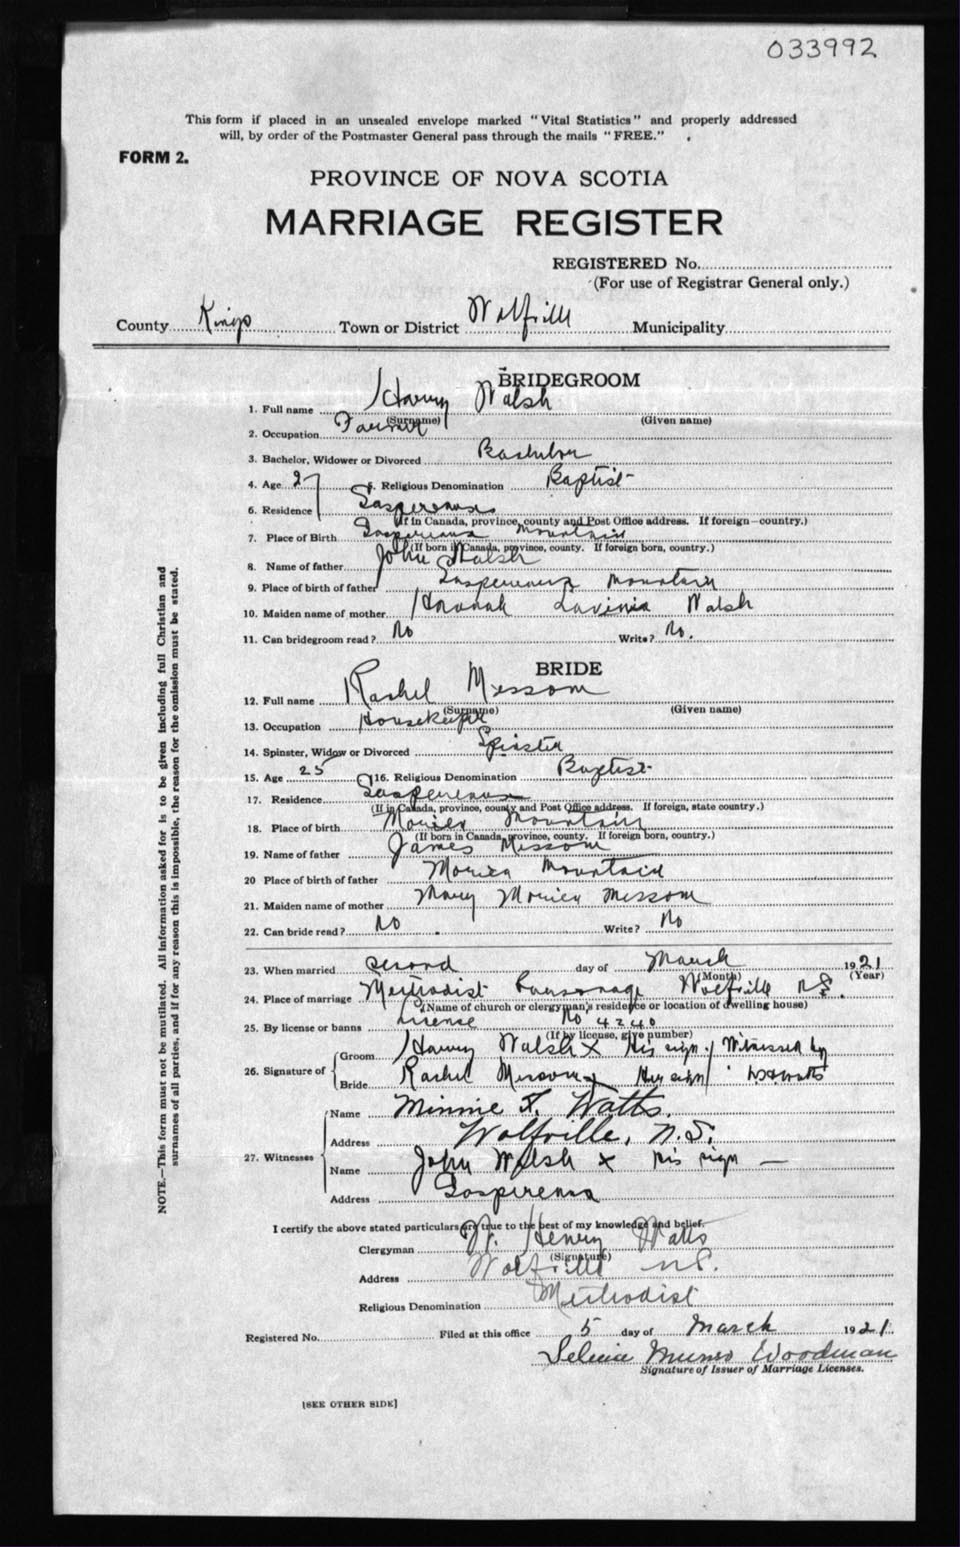 033992
This form if placed in an unsealed envelope marked "Vital Statistics" and properly addressed
will, by order of the Postmaster General pass through the mails "FREE."
FORM 2.
PROVINCE OF NOVA SCOTIA
MARRIAGE REGISTER
REGISTERED No.
(For use of Registrar General only.)
County Kings Town or District Wolfville Municipality
BRIDEGROOM
1. Full name Harvey Walsh
(Surname) (Given name)
2. Occupation Farmer
3. Bachelor, Widower or Divorced Bachelor
4. Age 27 5. Religious Denomination Baptist
6. Residence Gaspereaux
(If in Canada, province, county and Post Office address. If foreign—country.)
7. Place of Birth Gaspereaux Mountain
(If born in Canada, province, county. If foreign born, country.)
8. Name of father John Walsh
9. Place of birth of father Gaspereaux Mountain
10. Maiden name of mother Hannah Lavinia Walsh
11. Can bridegroom read? No Write? No.
BRIDE
12. Full name Rachel Messom
(Surname) (Given name)
13. Occupation Housekeeper
14. Spinster, Widow or Divorced Spinster
15. Age 25 16. Religious Denomination Baptist
17. Residence Gaspereaux
(If in Canada, province, county and Post Office address. If foreign, state country.)
18. Place of birth Mountain
(If born in Canada, province, county. If foreign born, country.)
19. Name of father James Messom
20 Place of birth of father Mountain
21. Maiden name of mother Mary Messom
22. Can bride read? No Write? No
23. When married second day of March 1921
(Month) (Year)
24. Place of marriage Methodist Parsonage Wolfville N.S.
(Name of church or clergyman's residence or location of dwelling house)
25. By license or banns License No 4240
(If by license, give number)
26. Signature of
Groom Harvey Walsh x His sign / Witnessed by
Bride Rachel Messom x Her sign / Watts
27. Witnesses
Name Minnie F. Watts.
Address Wolfville, N.S.
Name John Walsh x his sign —
Address Gaspereaux
I certify the above stated particulars are true to the best of my knowledge and belief.
Clergyman W. Henry Watts
(Signature)
Address Wolfville N.S.
Religious Denomination Methodist
Registered No. Filed at this office 5 day of March 1921.
Munro Woodman
Signature of Issuer of Marriage Licenses.
[SEE OTHER SIDE]
NOTE.—This form must not be mutilated. All information asked for is to be given including full Christian and
surnames of all parties, and if for any reason this is impossible, the reason for the omission must be stated.